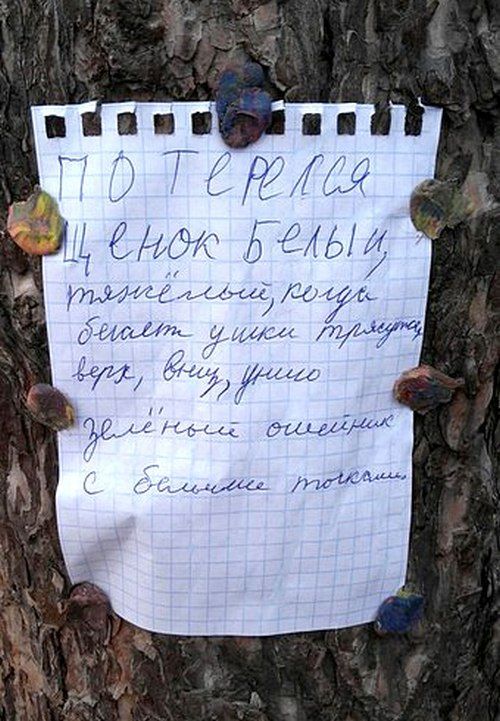 ПОТЕРЕЛСЯ
ЩЕНОК БЕЛЫЙ,
тяжёлый, когда
бегает ушки трясутся
верх, вниз,
зелёный ошейник
с белыми точками